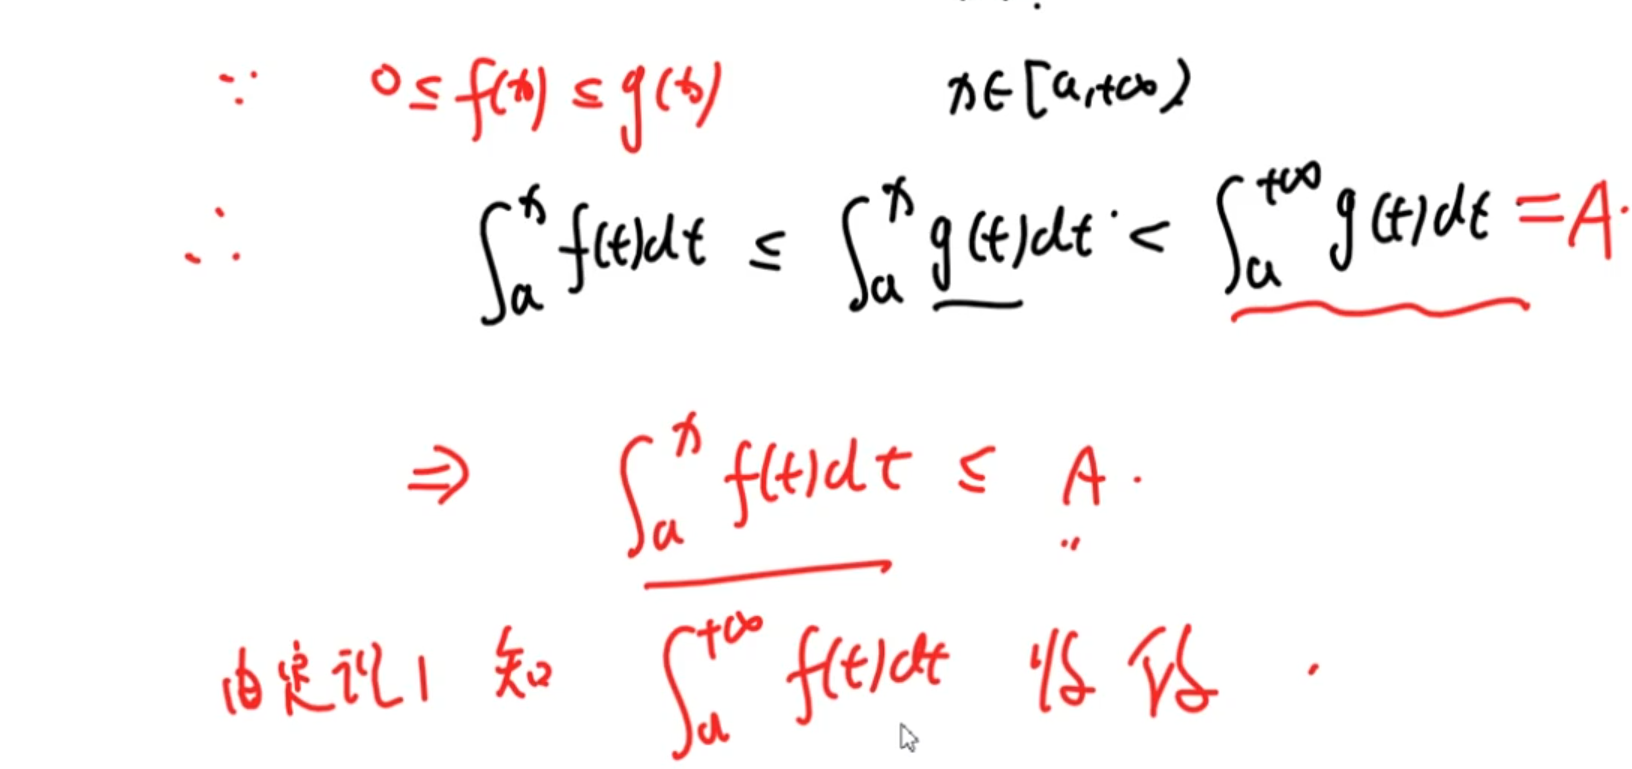 ∵ 0 ≤ f(x) ≤ g(x) x∈[a,+∞)
∴ ∫_a^x f(t)dt ≤ ∫_a^x g(t)dt < ∫_a^{+∞} g(t)dt = A.
⇒ ∫_a^x f(t)dt ≤ A.
由定理1 知 ∫_a^{+∞} f(t)dt 收敛.